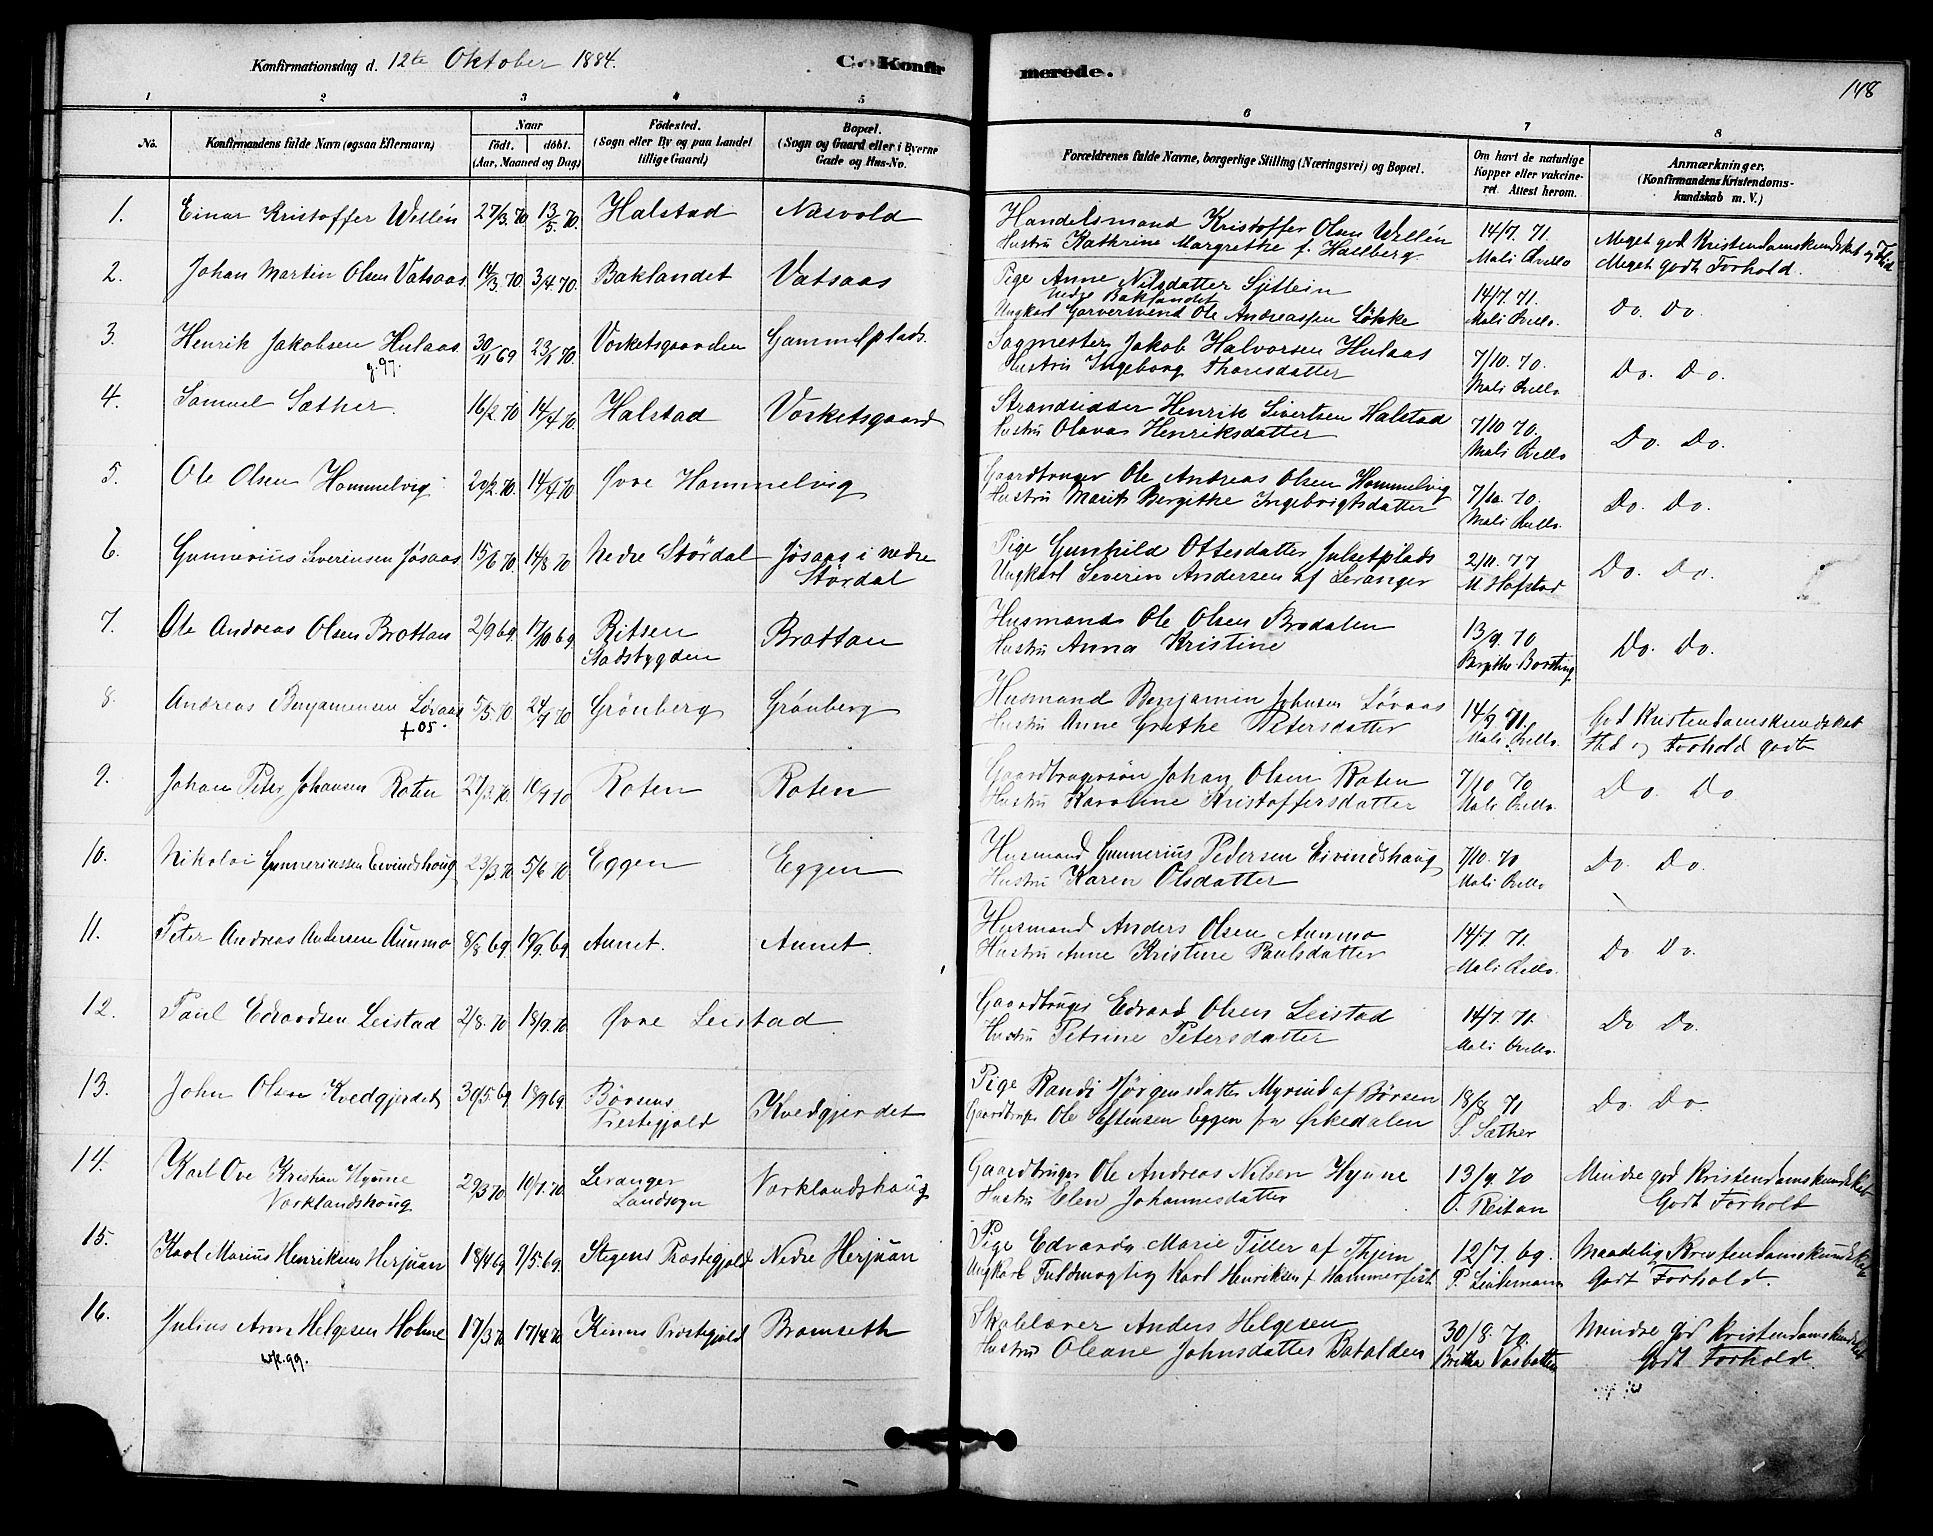 Konfirmationsdag d. 12te Oktober 1884.
C. Konfirmerede.
148
1 2 3 4 5 6 7 8
No. Konfirmandens fulde Navn (ogsaa Efternavn) Naar født. døbt. (Aar, Maaned og Dag) Fødested. (Sogn eller By og paa Landet tillige Gaard) Bopæl. (Sogn og Gaard eller i Byerne Gade og Hus-No. Forældrenes fulde Navne, borgerlige Stilling (Næringsvei) og Bopæl. Om havt de naturlige Kopper eller vakcineret. Attest herom. Anmærkninger. (Konfirmandens Kristendomskundskab m. V.)
1. Einar Kristoffer Wellén 27/3.70. 13/5.70. Halstad Næsvold Handelsmand Kristoffer Olsen Wellén 14/7.71. Meget god Kristendomskundskab og Flid
Hustru Kathrine Margrethe f. Hallberg Mali Qvello Meget godt Forhold.
2. Johan Martin Olsen Vatsaas 14/3.70. 3/4.70. Baklandet Vatsaas Pige Anne Nilsdatter Sjitlein 14/7.71. Do. Do.
Nedre Baklandet
Ungkarl Garversvend Ole Andreassen Løkke Mali Qvello.
3. Henrik Jakobsen Hulaas 30/11 69 23/1 70. Vorketsgaarden Gammelplads. Sagmester Jakob Halvorsen Hulaas 7/10.70. Do. Do.
g.97. Hustru Ingeborg Thoresdatter Mali Qvello
4. Samuel Sæther. 16/2.70 14/4 70 Halstad Vorketsgaard Strandsidder Henrik Sivertsen Halstad 7/10 70. Do. Do.
Hustru Olava Henriksdatter Mali Qvello
5. Ole Olsen Hommelvig 20/2.70. 14/4 70 Øvre Hommelvig Gaardbruger Ole Andreas Olsen Hommelvig 7/10.70. Do. Do.
Hustru Marit Bergitke Ingebrigtsdatter Mali Qvello.
6. Gunnerius Severinsen Jøsaas 15/6 70. 14/8 70 Nedre Størdal Jøsaas i nedre Størdal Pige Gunhild Ottesdatter Julsetplads 2/11.77 Do. Do.
Ungkarl Severin Andersen af Levanger M Hofstad
7. Ole Andreas Olsen Brattan 2/9 69. 17/10 69 Ritsen Stadsbygden Brattan Husmand Ole Olsen Brodalen 13/9.70 Do. Do.
Hustru Anna Kristine Bergithe Borsting
8. Andreas Benjaminsen Løvaas 5/5.70. 24/7 70 Grønberg Grønberg Husmand Benjamin Johnsen Løvaas 14/7 71. God Kristendomskundskab
+05. Hustru Anne Grethe Petersdatter Mali Qvello. Flid og Forhold godt
9. Johan Peter Johansen Roten 27/3.70. 10/7 70 Roten Roten Gaardbrugersøn Johan Olsen Roten 7/10 70 Do. Do.
Hustru Karoline Kristoffersdatter Mali Qvello.
10. Nikolai Gunneriussen Eivindshoug 23/3 70 5/6 70. Eggen Eggen Husmand Gunnerius Pedersen Eivindshaug 7/10.70 Do. Do.
Hustru Karen Olsdatter Mali Qvello
11. Peter Andreas Andersen Aunmo 8/8 69. 19/9.69 Aunet. Aunet. Husmand Anders Olsen Aunmo 14/7.71. Do Do.
Hustru Anne Kristine Paulsdatter Mali Qvello.
12. Paul Edvardsen Leistad 2/8.70 18/9.70 Øvre Leistad Gaardbruger Edvard Olsen Leistad 14/7.71. Do Do.
Hustru Petrine Petersdatter Mali Qvello.
13. John Olsen Kvedgjerdet 30/5.69. 18/9 69. Børsens Prestegjeld Kvedgjerdet Pige Randi Hjørgensdatter Myrind af Børsen 18/8 71 Do. Do.
Gaardbruger Ole Estensen Eggen fra Ørkedalen S. Sæther
14. Karl Ove Kristian Hynne 29/3 70 10/7.70. Levanger Landsogn Vorklandshaug Gaardbruger Ole Andreas Nilsen Hynne 13/9.70 Mindre god Kristendomskundskab
Vorklandshoug Hustru Elen Johannesdatter O. Reitan Godt Forhold
15. Karl Marius Henriksen Herjuan 18/4 69 9/5.69. Stegens Præstegjeld Nedre Herjuan Pige Edvarda Marie Tiller af Thjem 12/7.69. Maadelig Kristendomskundskab
Ungkarl Fuldmægtig Karl Henriksen f Hammerfest P. Lindemann Godt Forhold.
16. Julius Aron Helgesen Holme 17/3 70 17/4 70 Kinns Præstegjeld Bromseth Skoleærer Anders Helgesen 30/8.70. Mindre god Kristendomskundskab
99. Hustru Oleane Johnsdatter Batalden Brithe Vasbotten Godt Forhold.